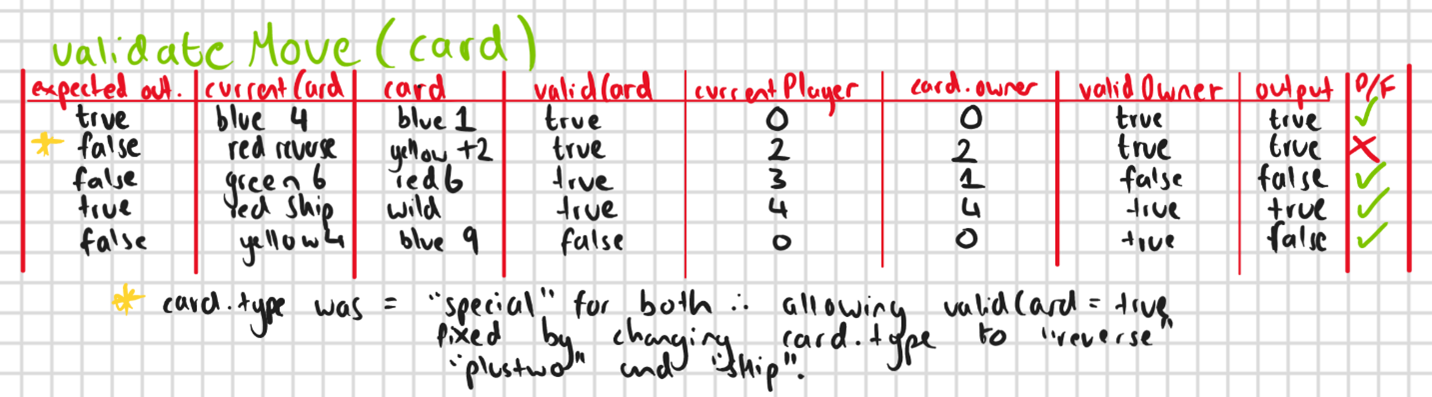 validate Move (card)
expected out. currentCard card validCard currentPlayer card.owner validOwner output P/F
true blue 4 blue 1 true 0 0 true true ✓
* false red reverse yellow +2 true 2 2 true true ✗
false green 6 red 6 true 3 1 false false ✓
true red skip wild true 4 4 true true ✓
false yellow 4 blue 9 false 0 0 true false ✓
* card.type was = "special" for both ∴ allowing validCard = true,
fixed by changing card.type to "reverse"
"plustwo" and "skip".